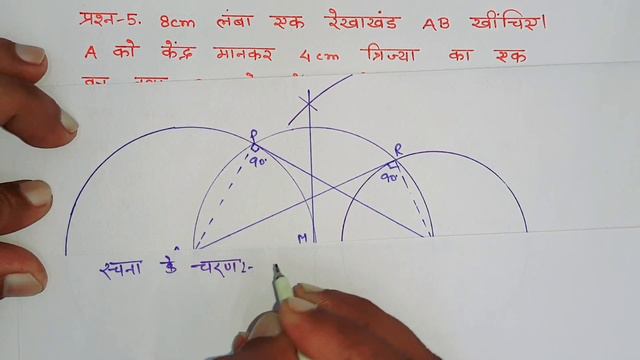 प्रश्न-5. 8cm लंबा एक रेखाखंड AB खींचिए।
A को केंद्र मानकर 4cm त्रिज्या का एक
P
90°
R
90°
M
रचना के चरण:-